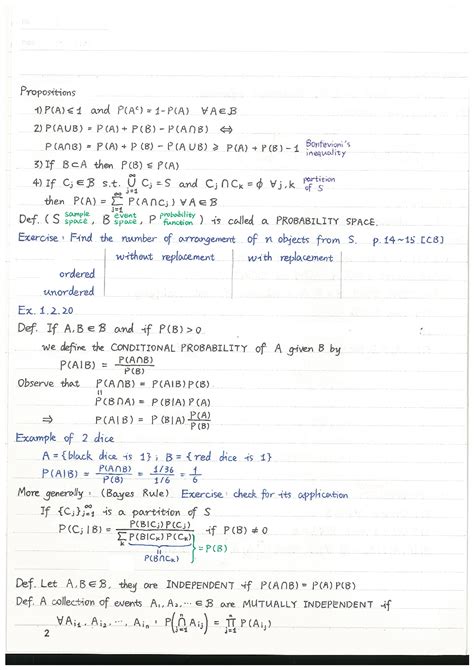 Propositions
1) P(A) ≤ 1 and P(Aᶜ) = 1-P(A) ∀A∈B
2) P(A∪B) = P(A) + P(B) - P(A∩B) ⇔
P(A∩B) = P(A) + P(B) - P(A∪B) ≥ P(A) + P(B) - 1 Bonferroni's inequality
3) If B⊂A then P(B) ≤ P(A)
4) If Cⱼ∈B s.t. ∪_{j=1}^{∞} Cⱼ = S and Cⱼ∩Cₖ = ϕ ∀j,k partition of S
then P(A) = Σ_{j=1}^{∞} P(A∩Cⱼ) ∀A∈B
Def. (S sample space, B event space, P probability function) is called a PROBABILITY SPACE.
Exercise: Find the number of arrangement of n objects from S. p.14~15 [CB]
without replacement with replacement
ordered
unordered
Ex. 1.2.20
Def. If A,B∈B and if P(B)>0
we define the CONDITIONAL PROBABILITY of A given B by
P(A|B) = P(A∩B)/P(B)
Observe that P(A∩B) = P(A|B)P(B)
=
P(B∩A) = P(B|A)P(A)
⇒ P(A|B) = P(B|A) P(A)/P(B)
Example of 2 dice
A = {black dice is 1}; B = {red dice is 1}
P(A|B) = P(A∩B)/P(B) = (1/36)/(1/6) = 1/6
More generally: (Bayes Rule) Exercise: check for its application
If {Cⱼ}_{j=1}^{∞} is a partition of S
P(Cⱼ|B) = P(B|Cⱼ)P(Cⱼ) / Σₖ P(B|Cₖ)P(Cₖ) if P(B) ≠ 0
= P(B)
=
P(B∩Cₖ)
Def. Let A,B∈B, they are INDEPENDENT if P(A∩B) = P(A)P(B)
Def. A collection of events A₁, A₂, ⋯ ∈B are MUTUALLY INDEPENDENT if
∀A_{i₁}, A_{i₂}, ⋯, A_{iₙ} : P(∩_{j=1}^{n} A_{iⱼ}) = Π_{j=1}^{n} P(A_{iⱼ})
2